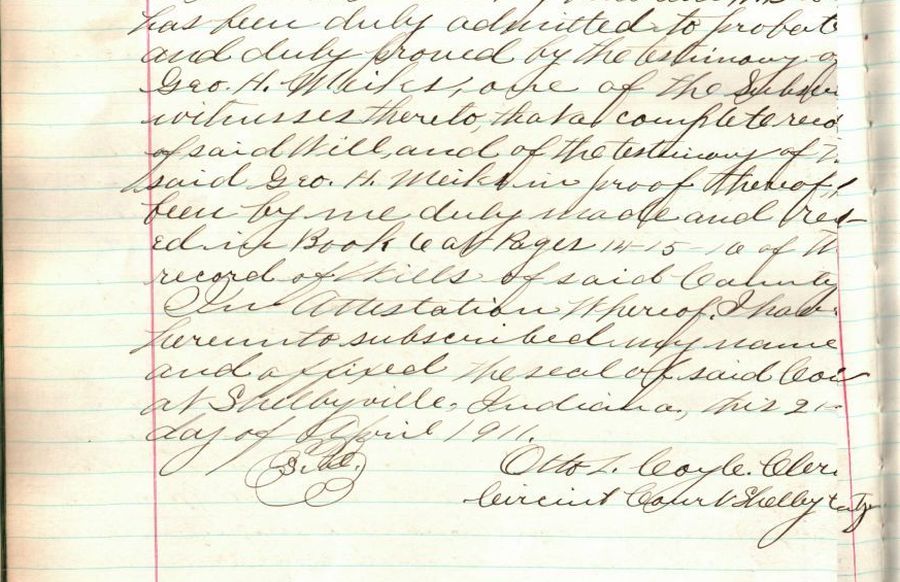 has been duly admitted to probate
and duly proved by the testimony of
Geo. H. Meiks, one of the Subscri
witnesses thereto, that a complete reco
of said Will, and of the testimony of
said Geo. H. Meiks in proof thereof,
been by me duly made and rec
ed in Book 6 at Pages 14-15-16 of
record of Wills of said County
In Attestation Whereof, I have
hereunto subscribed my name
and affixed the seal of said Cou
at Shelbyville, Indiana, this 21
day of April 1911.
Otto L. Coyle. Cler
Circuit Court Shelby Cnty